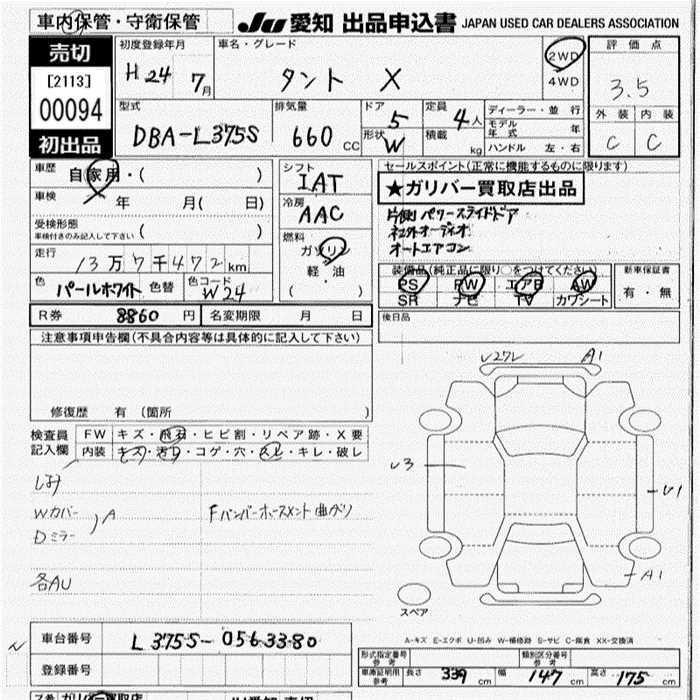 車内保管・守衛保管
JU 愛知 出品申込書 JAPAN USED CAR DEALERS ASSOCIATION
売切
[2113]
00094
初出品
初度登録年月
H24 7月
車名・グレード
タント X
2WD
4WD
評価点
3.5
外装 内装
C C
型式
DBA-L375S
排気量
660 CC
ドア
5
形状
W
定員
4人
積載
kg
ディーラー・並行
モデル年式 年
ハンドル 左・右
車歴
自家用・( )
車検
年 月( 日)
受検形態
車検付きのみ記入して下さい ( )
走行
13万7千472km
色 パールホワイト 色替 色コード W24
シフト
IAT
冷房
AAC
燃料
ガソリン
軽・油
( )
セールスポイント(正常に機能するものに限ります)
★ガリバー買取店出品
片側パワースライドドア
社外オーディオ
オートエアコン
装備品(純正品に限り○をつけてください)
PS PW エアB AW
SR ナビ TV カワシート
新車保証書
有・無
R券 8860 円 名変期限 月 日
後日品
注意事項申告欄(不具合内容等は具体的に記入して下さい)
修復歴 有 (箇所 )
検査員記入欄
FW キズ・飛石・ヒビ割・リペア跡・X要
内装 キズ・汚れ・コゲ・穴・スレ・キレ・破レ
しみ
Wカバー
Dミラー
A
Fバンパーホースメント曲がり
各AU
U27L A1
U3
U1
A1
スペア
A-キズ E-エクボ U-凹み W-補修跡 S-サビ C-腐食 XX-交換済
車台番号 L375S-0563380
登録番号
形式指定番号 参考
類別区分番号 参考
車庫証明用参考 長さ 339 cm 幅 147 cm 高さ 175 cm
ガリバー買取店
JU愛知 売切